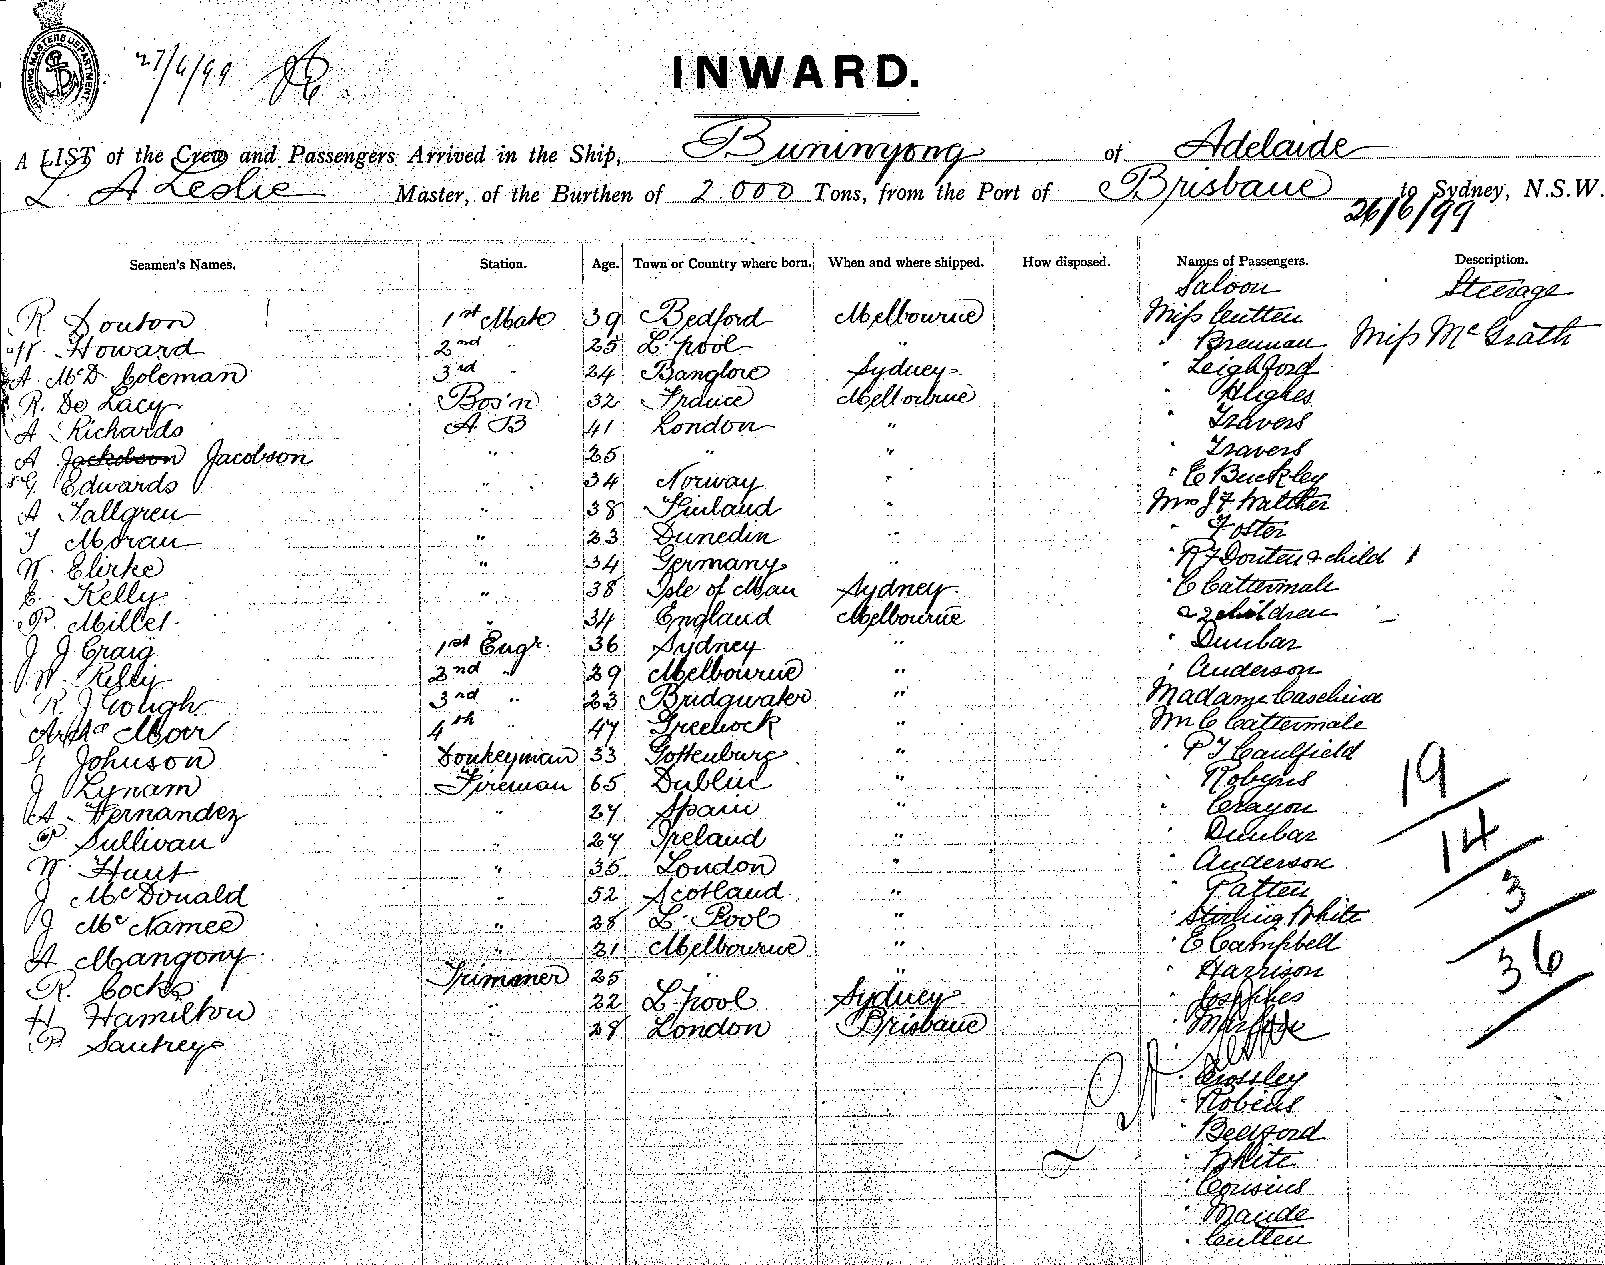 SHIPPING MASTERS DEPARTMENT
27/6/99
INWARD.
A LIST of the Crew and Passengers Arrived in the Ship, Buninyong of Adelaide
L. A Leslie Master, of the Burthen of 2.000 Tons, from the Port of Brisbane to Sydney, N.S.W.
26/6/99
Seamen's Names. Station. Age. Town or Country where born. When and where shipped. How disposed. Names of Passengers. Description.
Saloon Steerage
R Douton 1st Mate 39 Bedford Melbourne Miss Cutten
W. Howard 2nd " 25 L'pool " " Brennan Miss McGrath
A McD Coleman 3rd " 24 Banglore Sydney " Leighford
R. De Lacy Bos'n 32 France Melbourne " Hughes
A Richards A B 41 London " " Travers
A Jackobson Jacobson " 25 " " " Travers
G Edwards " 34 Norway " " E Buckley
A Tallgren " 38 Finland " Mrs J F Walther
T Moran " 23 Dunedin " " Foster
W. Clirke " 34 Germany " " R J Douten & child 1
E. Kelly " 38 Isle of Man Sydney " C Cattermale
P. Millet " 34 England Melbourne & 2 children
J J Craig 1st Engr. 36 Sydney " " Dunbar
W. Kelly 2nd " 29 Melbourne " " Anderson
R J Gough 3rd " 23 Bridgwater " Madame Caschina
Moir 4th " 47 Greenock " Mr C Cattermale
G Johnson Donkeyman 33 Gottenburg " " P J Caulfield
J Lynam Fireman 65 Dublin " " Robyns
A Hernandez " 27 Spain " " Crayon
P Sullivan " 27 Ireland " " Dunbar
W Hunt " 35 London " " Anderson
J McDonald " 52 Scotland " " Patten
J McNamee " 28 L' Pool " " Stirling White
A Mangony " 21 Melbourne " " E Campbell
R. Cocks Trimmer 25 " " " Harrison
H Hamilton " 22 L'pool Sydney "
P Sautreys " 28 London Brisbane "
L A Leslie
" Crossley
" Robins
" Bedford
" White
" Cousins
" Maude
" Cutten
19
14
3
36